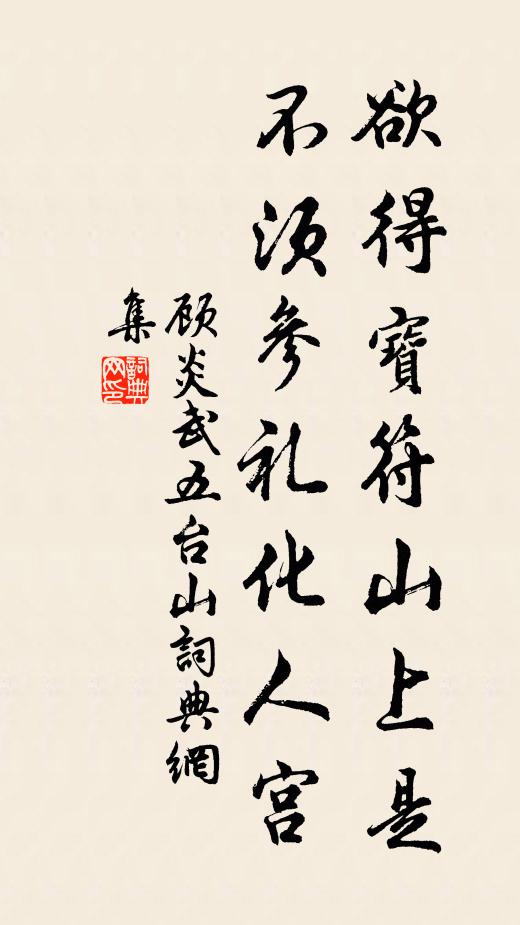 欲得寶符山上是
不須參礼化人宮
顾炎武五台山詞典網
集
詞典网印